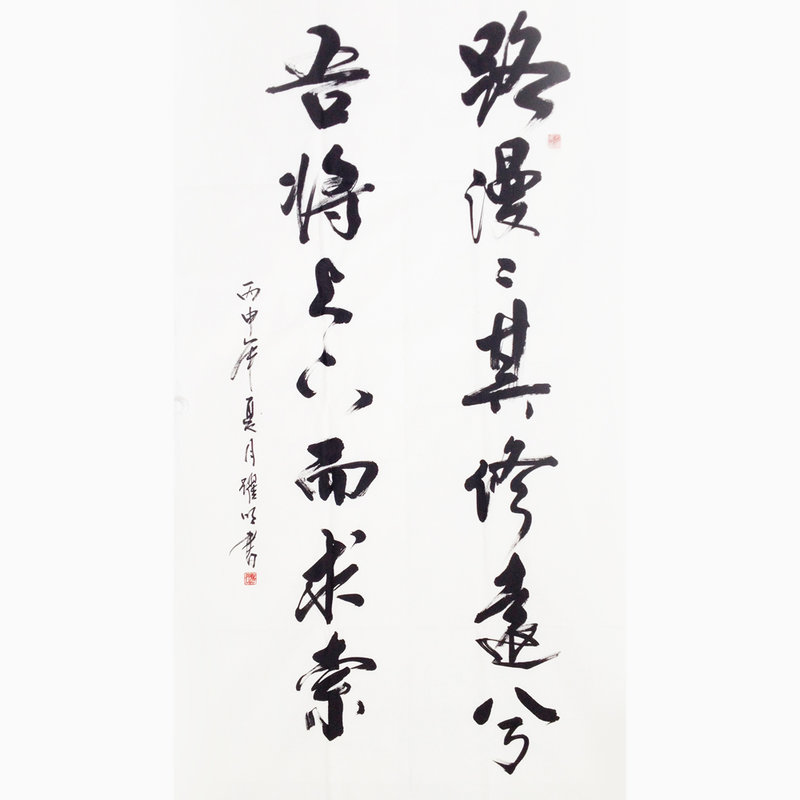 路漫〻其修遠兮
吾将上下而求索
丙申年夏月耀明書